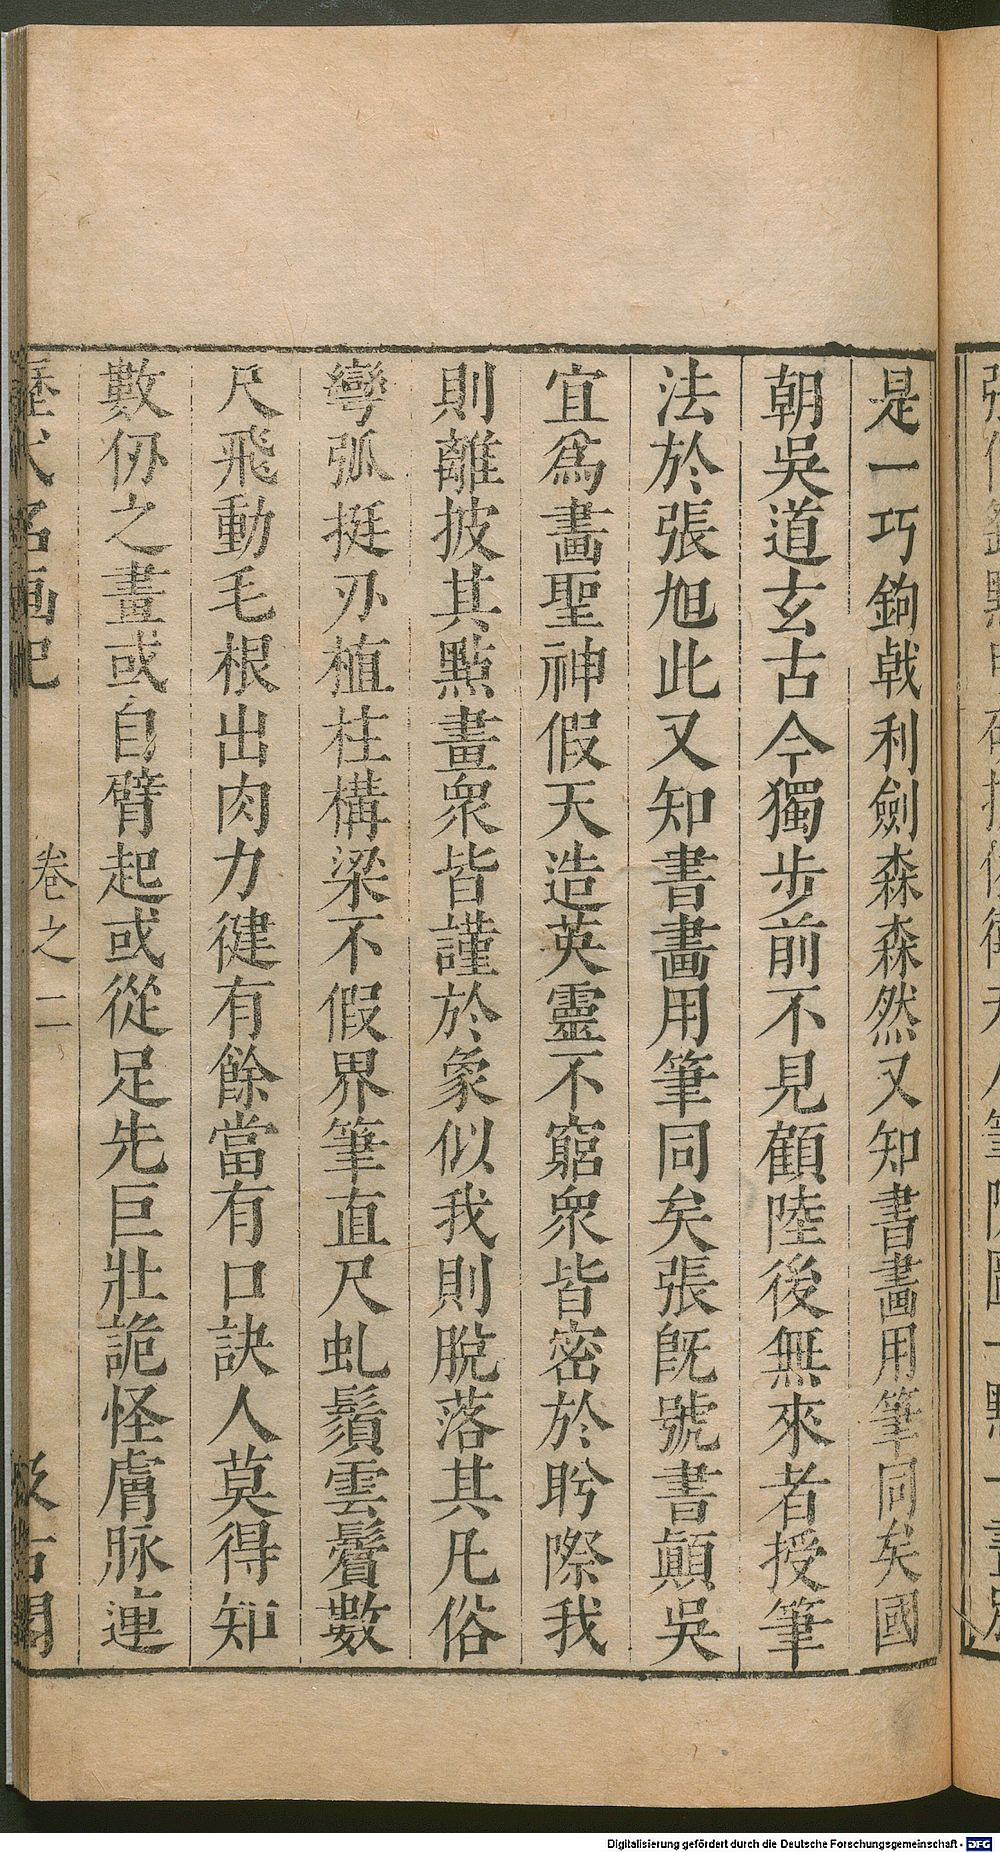 是一巧鉤戟利劍森森然又知書畫用筆同矣國
朝吳道玄古今獨步前不見顧陸後無來者授筆
法於張旭此又知書畫用筆同矣張旣號書顛吳
宜爲畫聖神假天造英靈不窮衆皆密於盻際我
則離披其點畫衆皆謹於象似我則脫落其凡俗
彎弧挺刃植柱構梁不假界筆直尺虬鬚雲鬢數
尺飛動毛根出肉力健有餘當有口訣人莫得知
數仞之畫或自臂起或從足先巨壯詭怪膚脉連
歷代名画記
卷之二
古閣
Digitalisierung gefördert durch die Deutsche Forschungsgemeinschaft - DFG